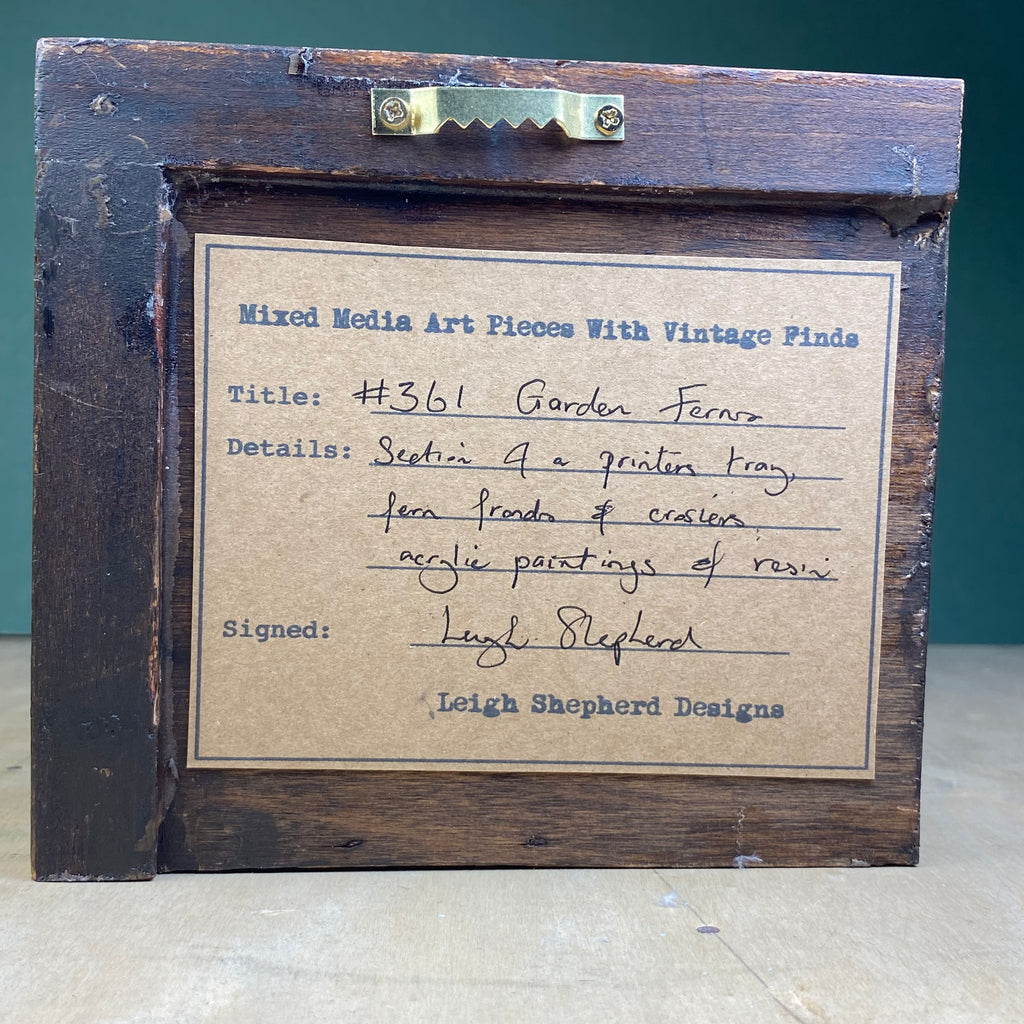 Mixed Media Art Pieces With Vintage Finds
Title: #361 Garden Ferns
Details: Section of a printers tray,
fern fronds & crosiers
acrylic paintings & resin
Signed: Leigh Shepherd
Leigh Shepherd Designs